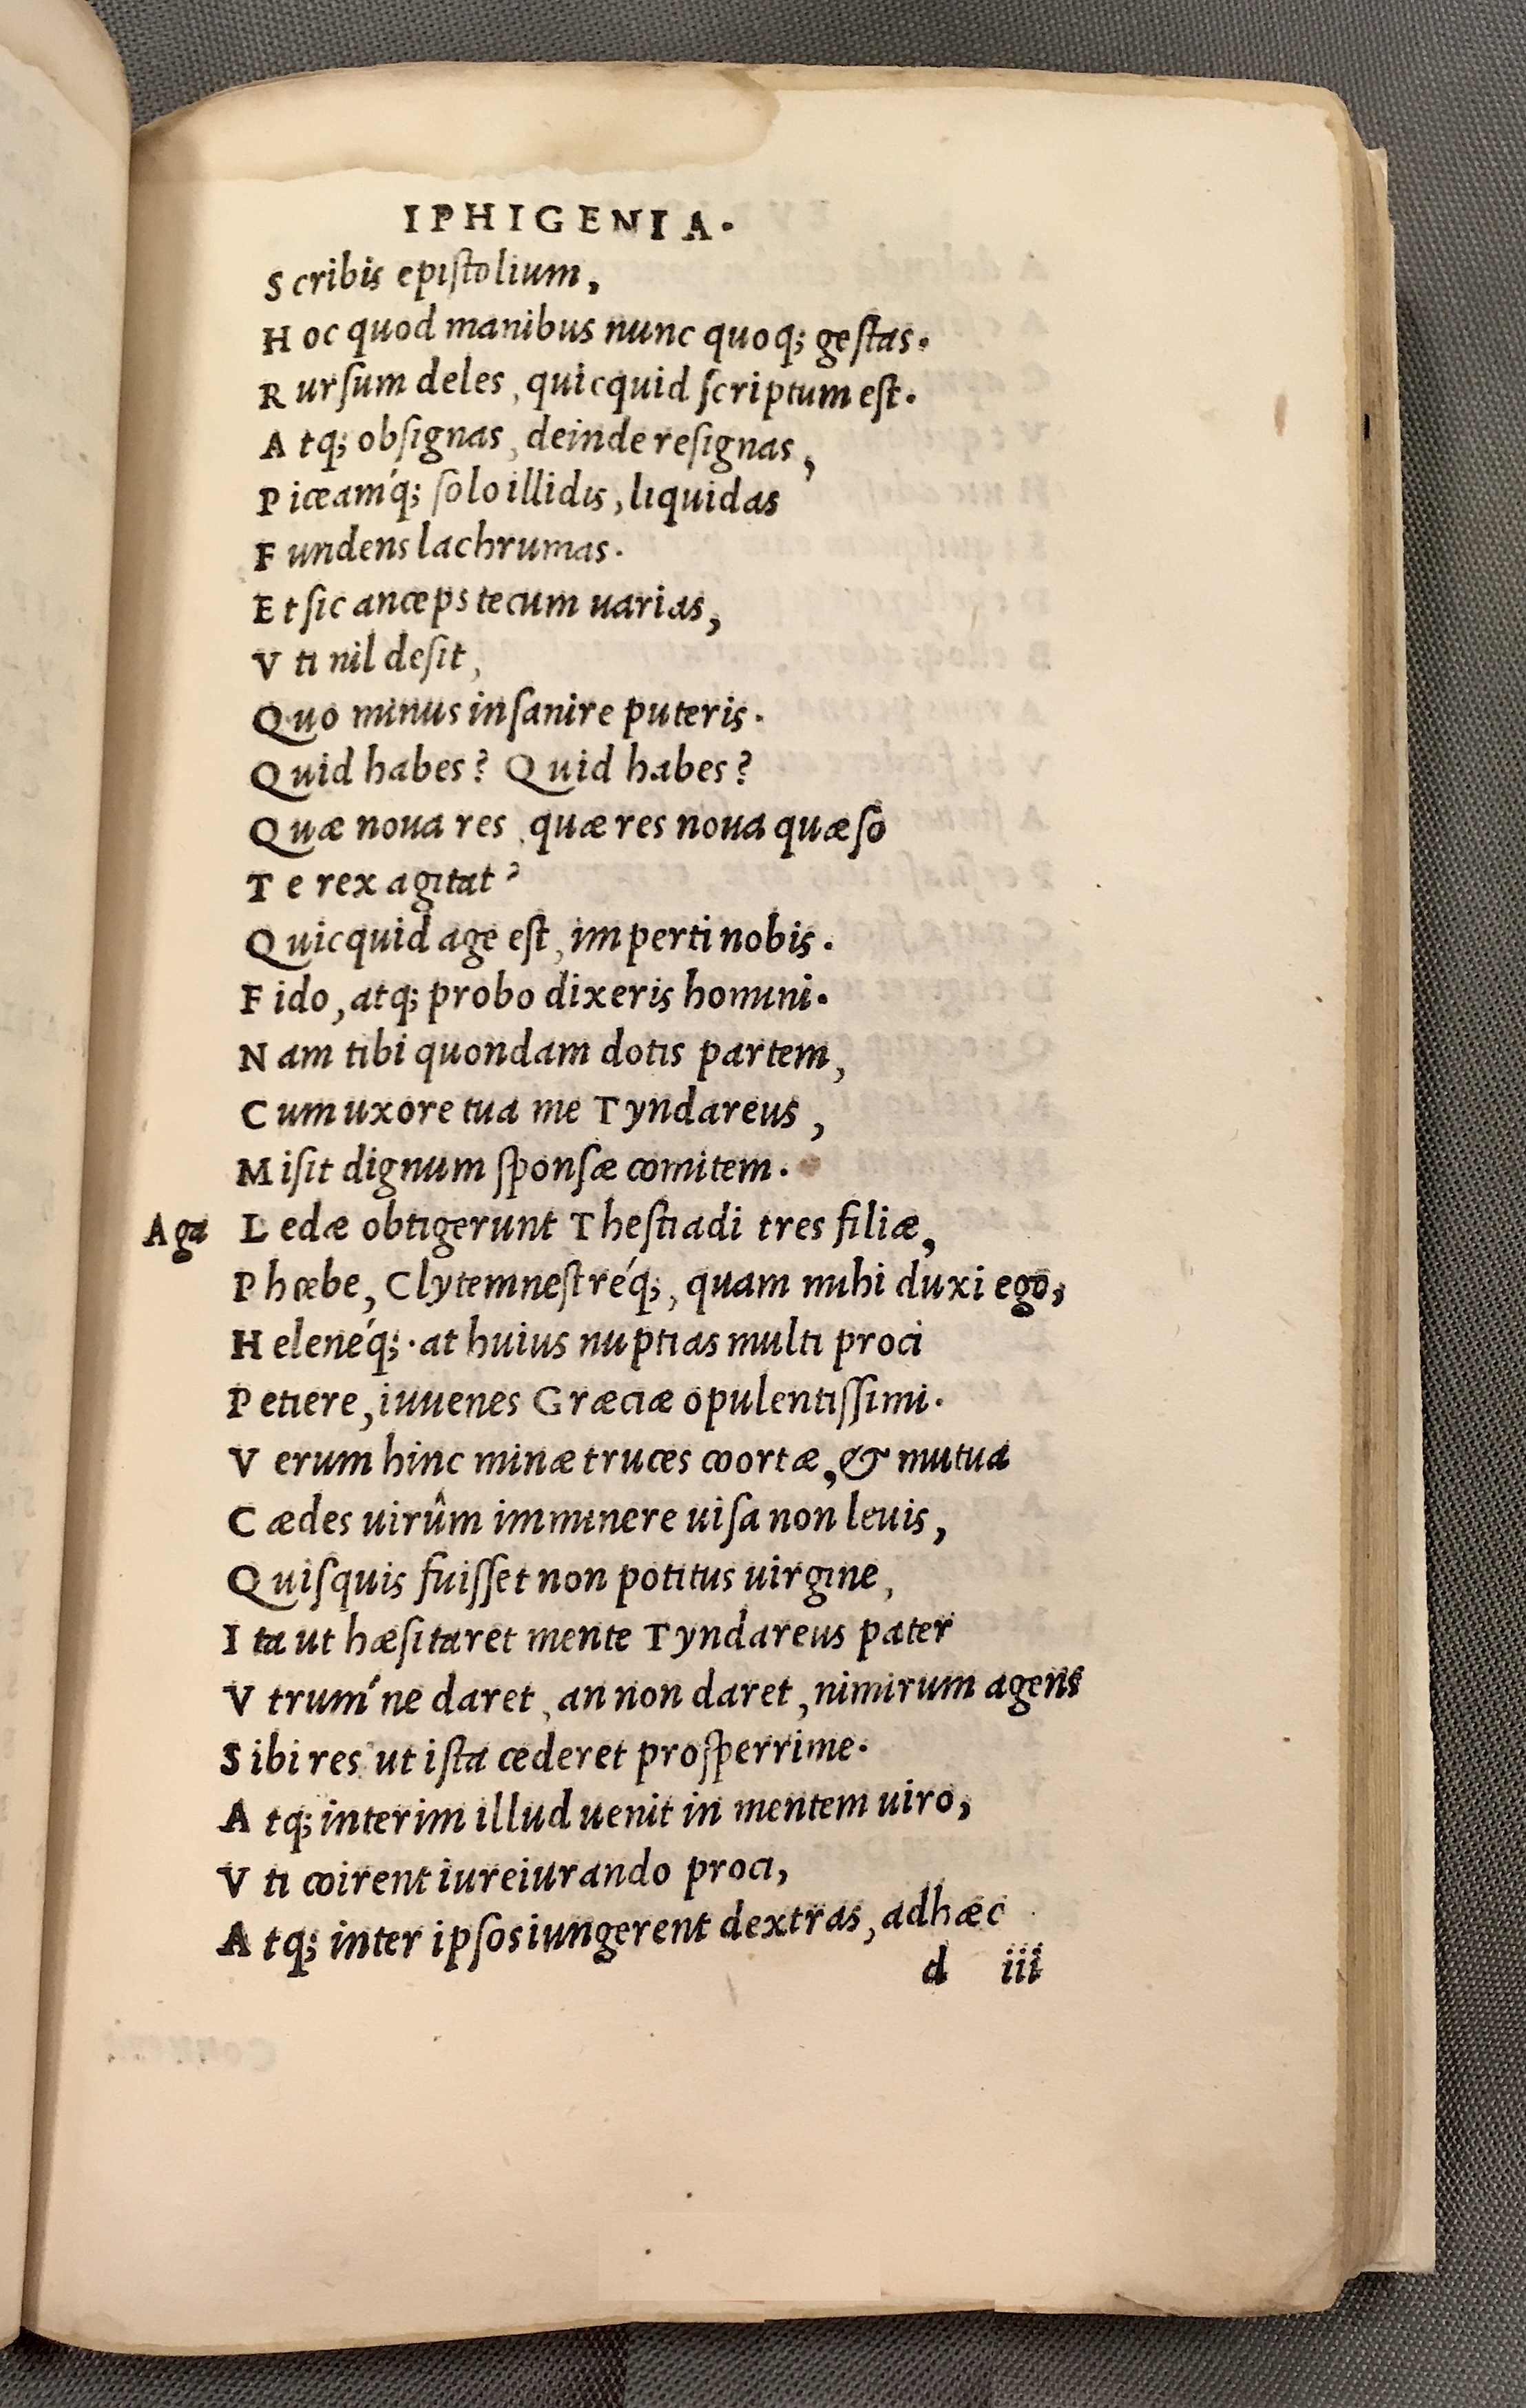 IPHIGENIA.
Scribis epiſtolium,
Hoc quod manibus nunc quoq; geſtas.
Rurſum deles, quicquid ſcriptum eſt.
Atq; obſignas, deinde reſignas,
Piceam´q; ſolo illidis, liquidas
Fundens lachrumas.
Et ſic anceps tecum uarias,
Vti nil deſit,
Quo minus inſanire puteris.
Quid habes? Quid habes?
Quæ noua res, quæ res noua quæſo
Te rex agitat?
Quicquid age eſt, imperti nobis.
Fido, atq; probo dixeris homini.
Nam tibi quondam dotis partem,
Cum uxore tua me Tyndareus,
Miſit dignum ſponſæ comitem.
Aga Ledæ obtigerunt Theſtiadi tres filiæ,
Phœbe, Clytemneſtréq;, quam mihi duxi ego,
Helenéq;. at huius nuptias multi proci
Petiere, iuuenes Græciæ opulentiſſimi.
Verum hinc minæ truces coortæ, & mutua
Cædes uirûm imminere uiſa non leuis,
Quiſquis fuiſſet non potitus uirgine,
Ita ut hæſitaret mente Tyndareus pater
Vtrum´ne daret, an non daret, nimirum agens
Sibi res ut iſta cederet proſperrime.
Atq; interim illud uenit in mentem uiro,
Vti coirent iureiurando proci,
Atq; inter ipſos iungerent dextras, adhæc
d iii